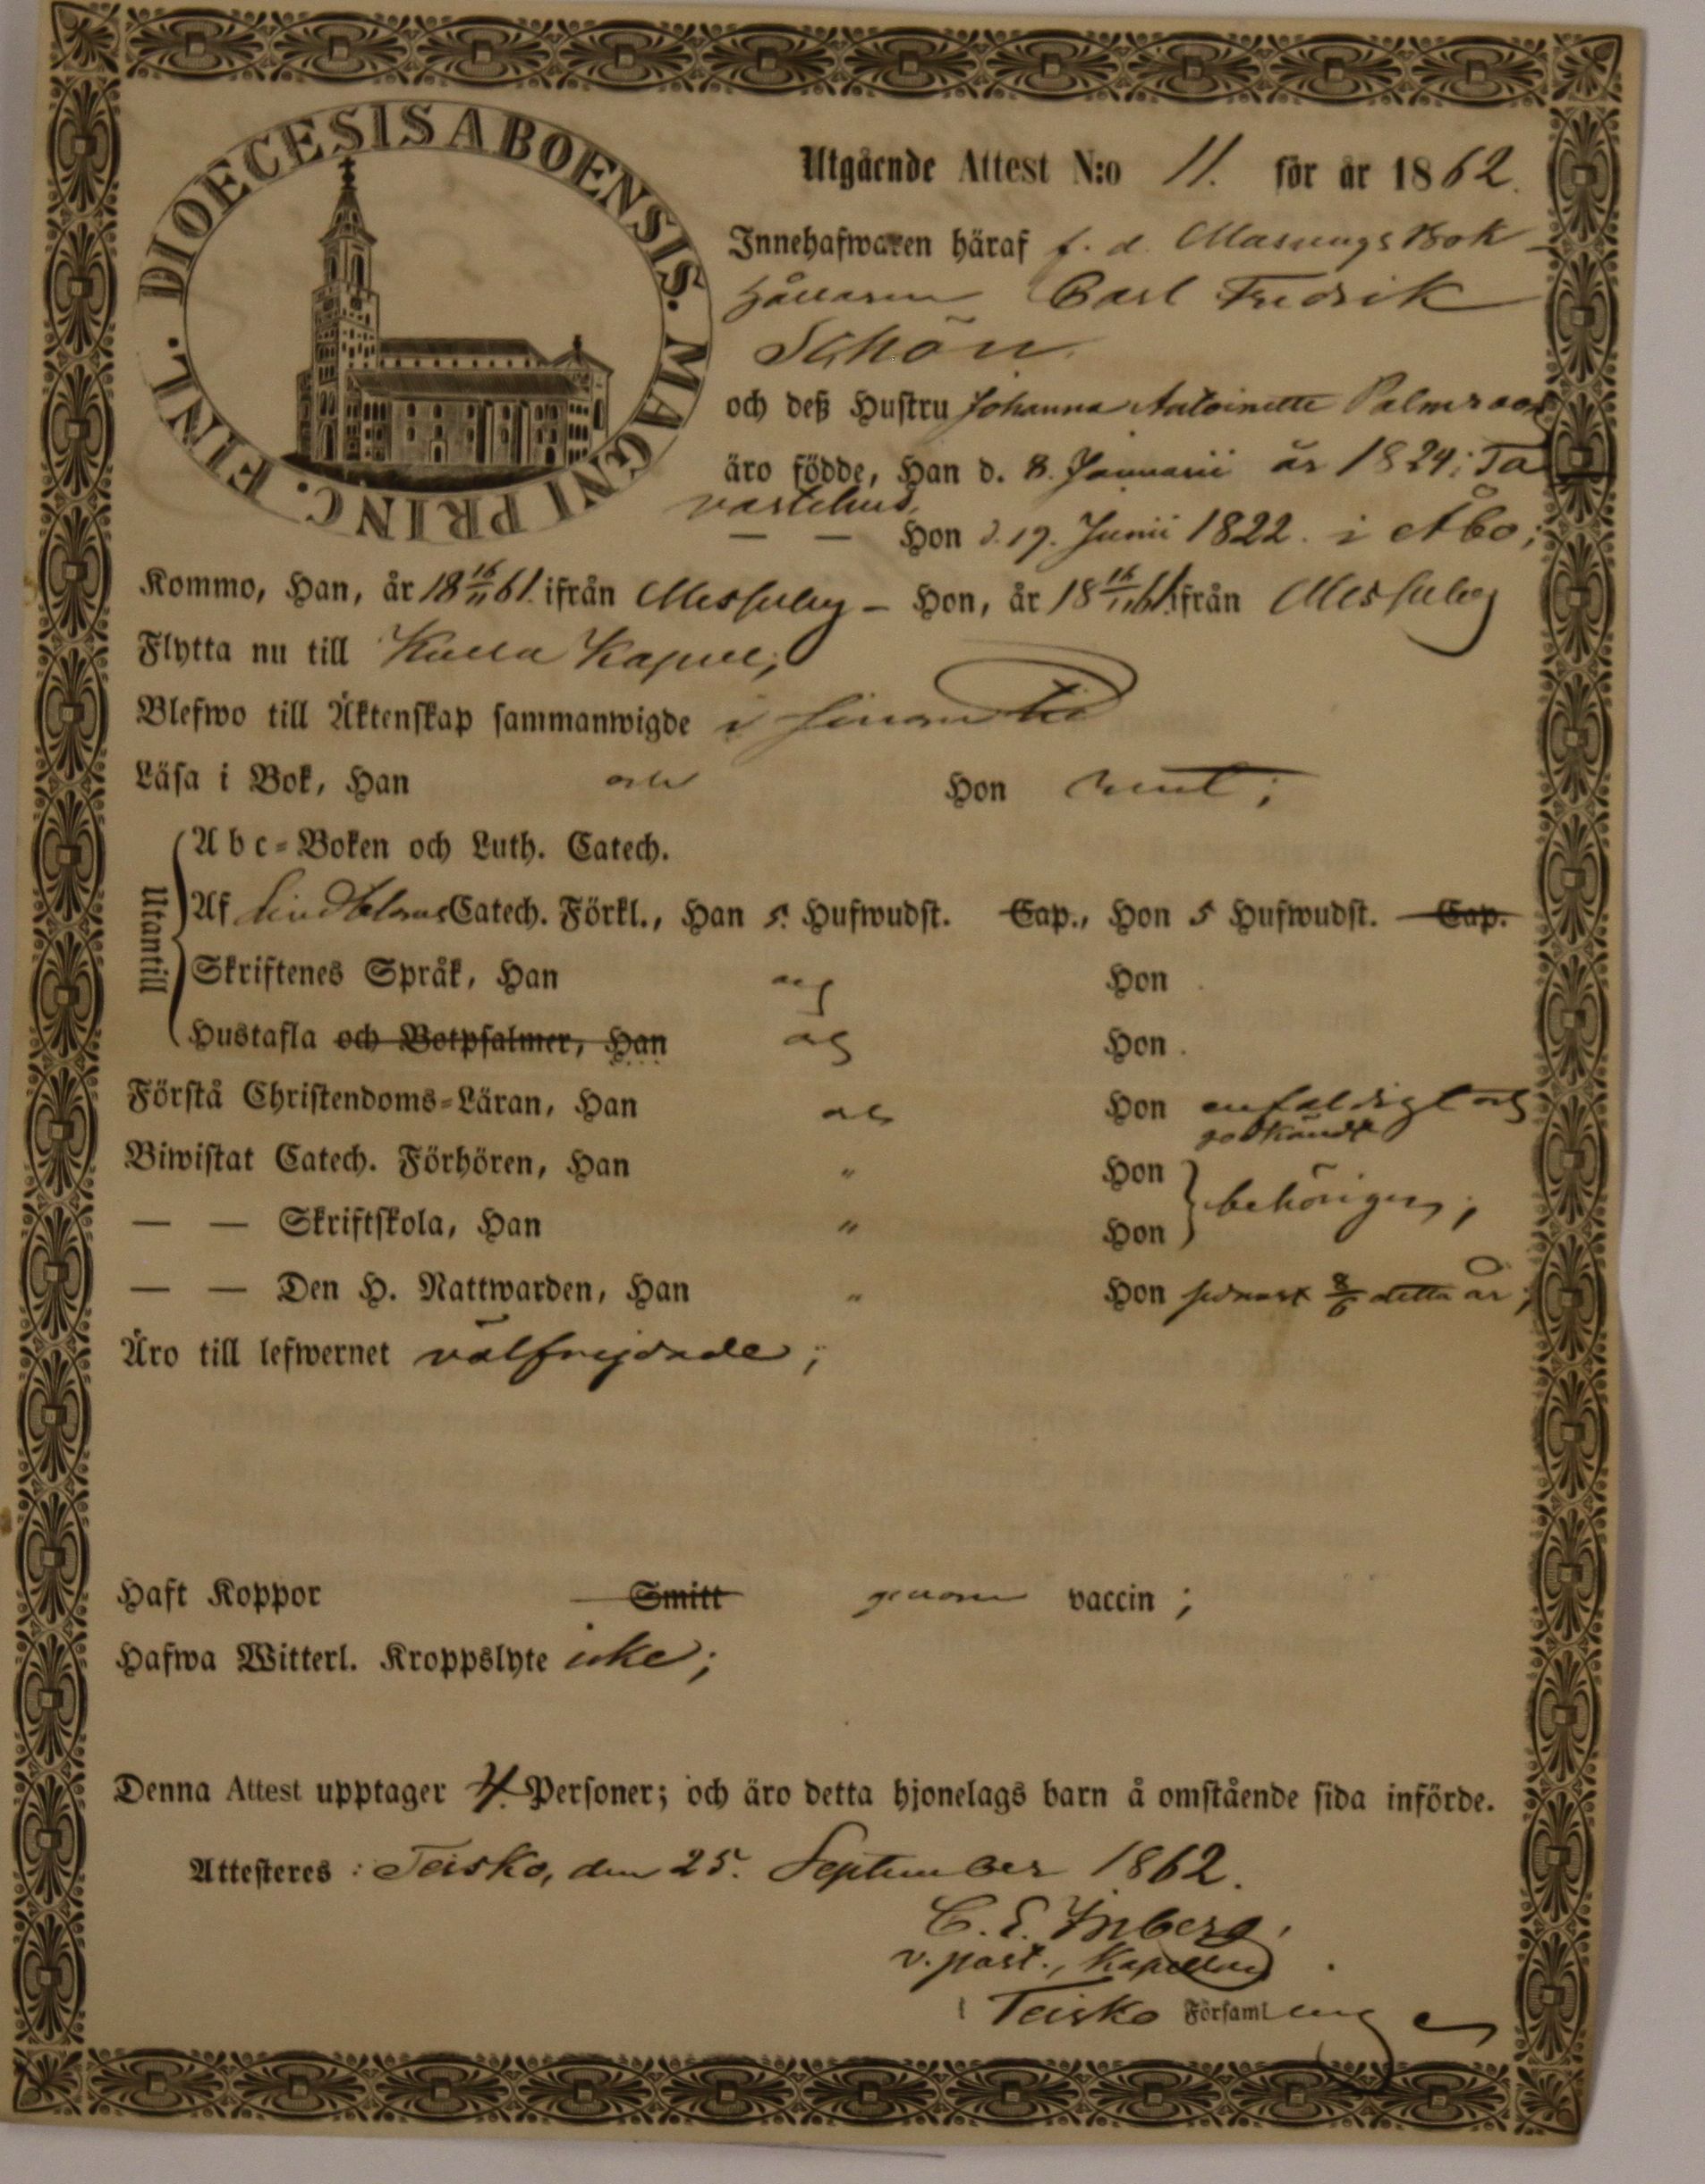 DIOECESIS ABOENSIS. MAGNI PRINC. FINL.
Utgående Attest N:o 11. för år 1862.
Innehafwaren häraf f. d. Masungs Bok
hållaren Carl Fredrik
Schön
och deß Hustru Johanna Antoinette Palmroos
äro födde, Han d. 8. Januarii år 1824 i Ta
vastehus,
— — Hon d. 19. Junii 1822. i Åbo;
Kommo, Han, år 18 16/11 61. ifrån Messuby – Hon, år 18 16/11 61. ifrån Messuby
Flytta nu till Kulla Kapell;
Blefwo till Äktenskap sammanwigde i sinom tid
Läsa i Bok, Han och Hon rent;
Utantill
Abc-Boken och Luth. Catech.
Af Lindbloms Catech. Förkl., Han 5. Hufwudst. Cap., Hon 5 Hufwudst. Cap.
Skriftenes Språk, Han och Hon
Hustafla och Botpsalmer, Han och Hon
Förstå Christendoms-Läran, Han och Hon enfaldigt och
godkändt
Biwistat Catech. Förhören, Han " Hon
behörigen;
— — Skriftskola, Han " Hon
— — Den H. Nattwarden, Han " Hon senast 8/6 detta år;
Äro till lefwernet välfrejdade;
Haft Koppor Smitt genom vaccin;
Hafwa Witterl. Kroppslyte icke;
Denna Attest upptager 4. Personer; och äro detta hjonelags barn å omstående sida införde.
Attesteres: Teisko, den 25. September 1862.
C. E. Inberg,
v. past., Kapellan
i Teisko Församling